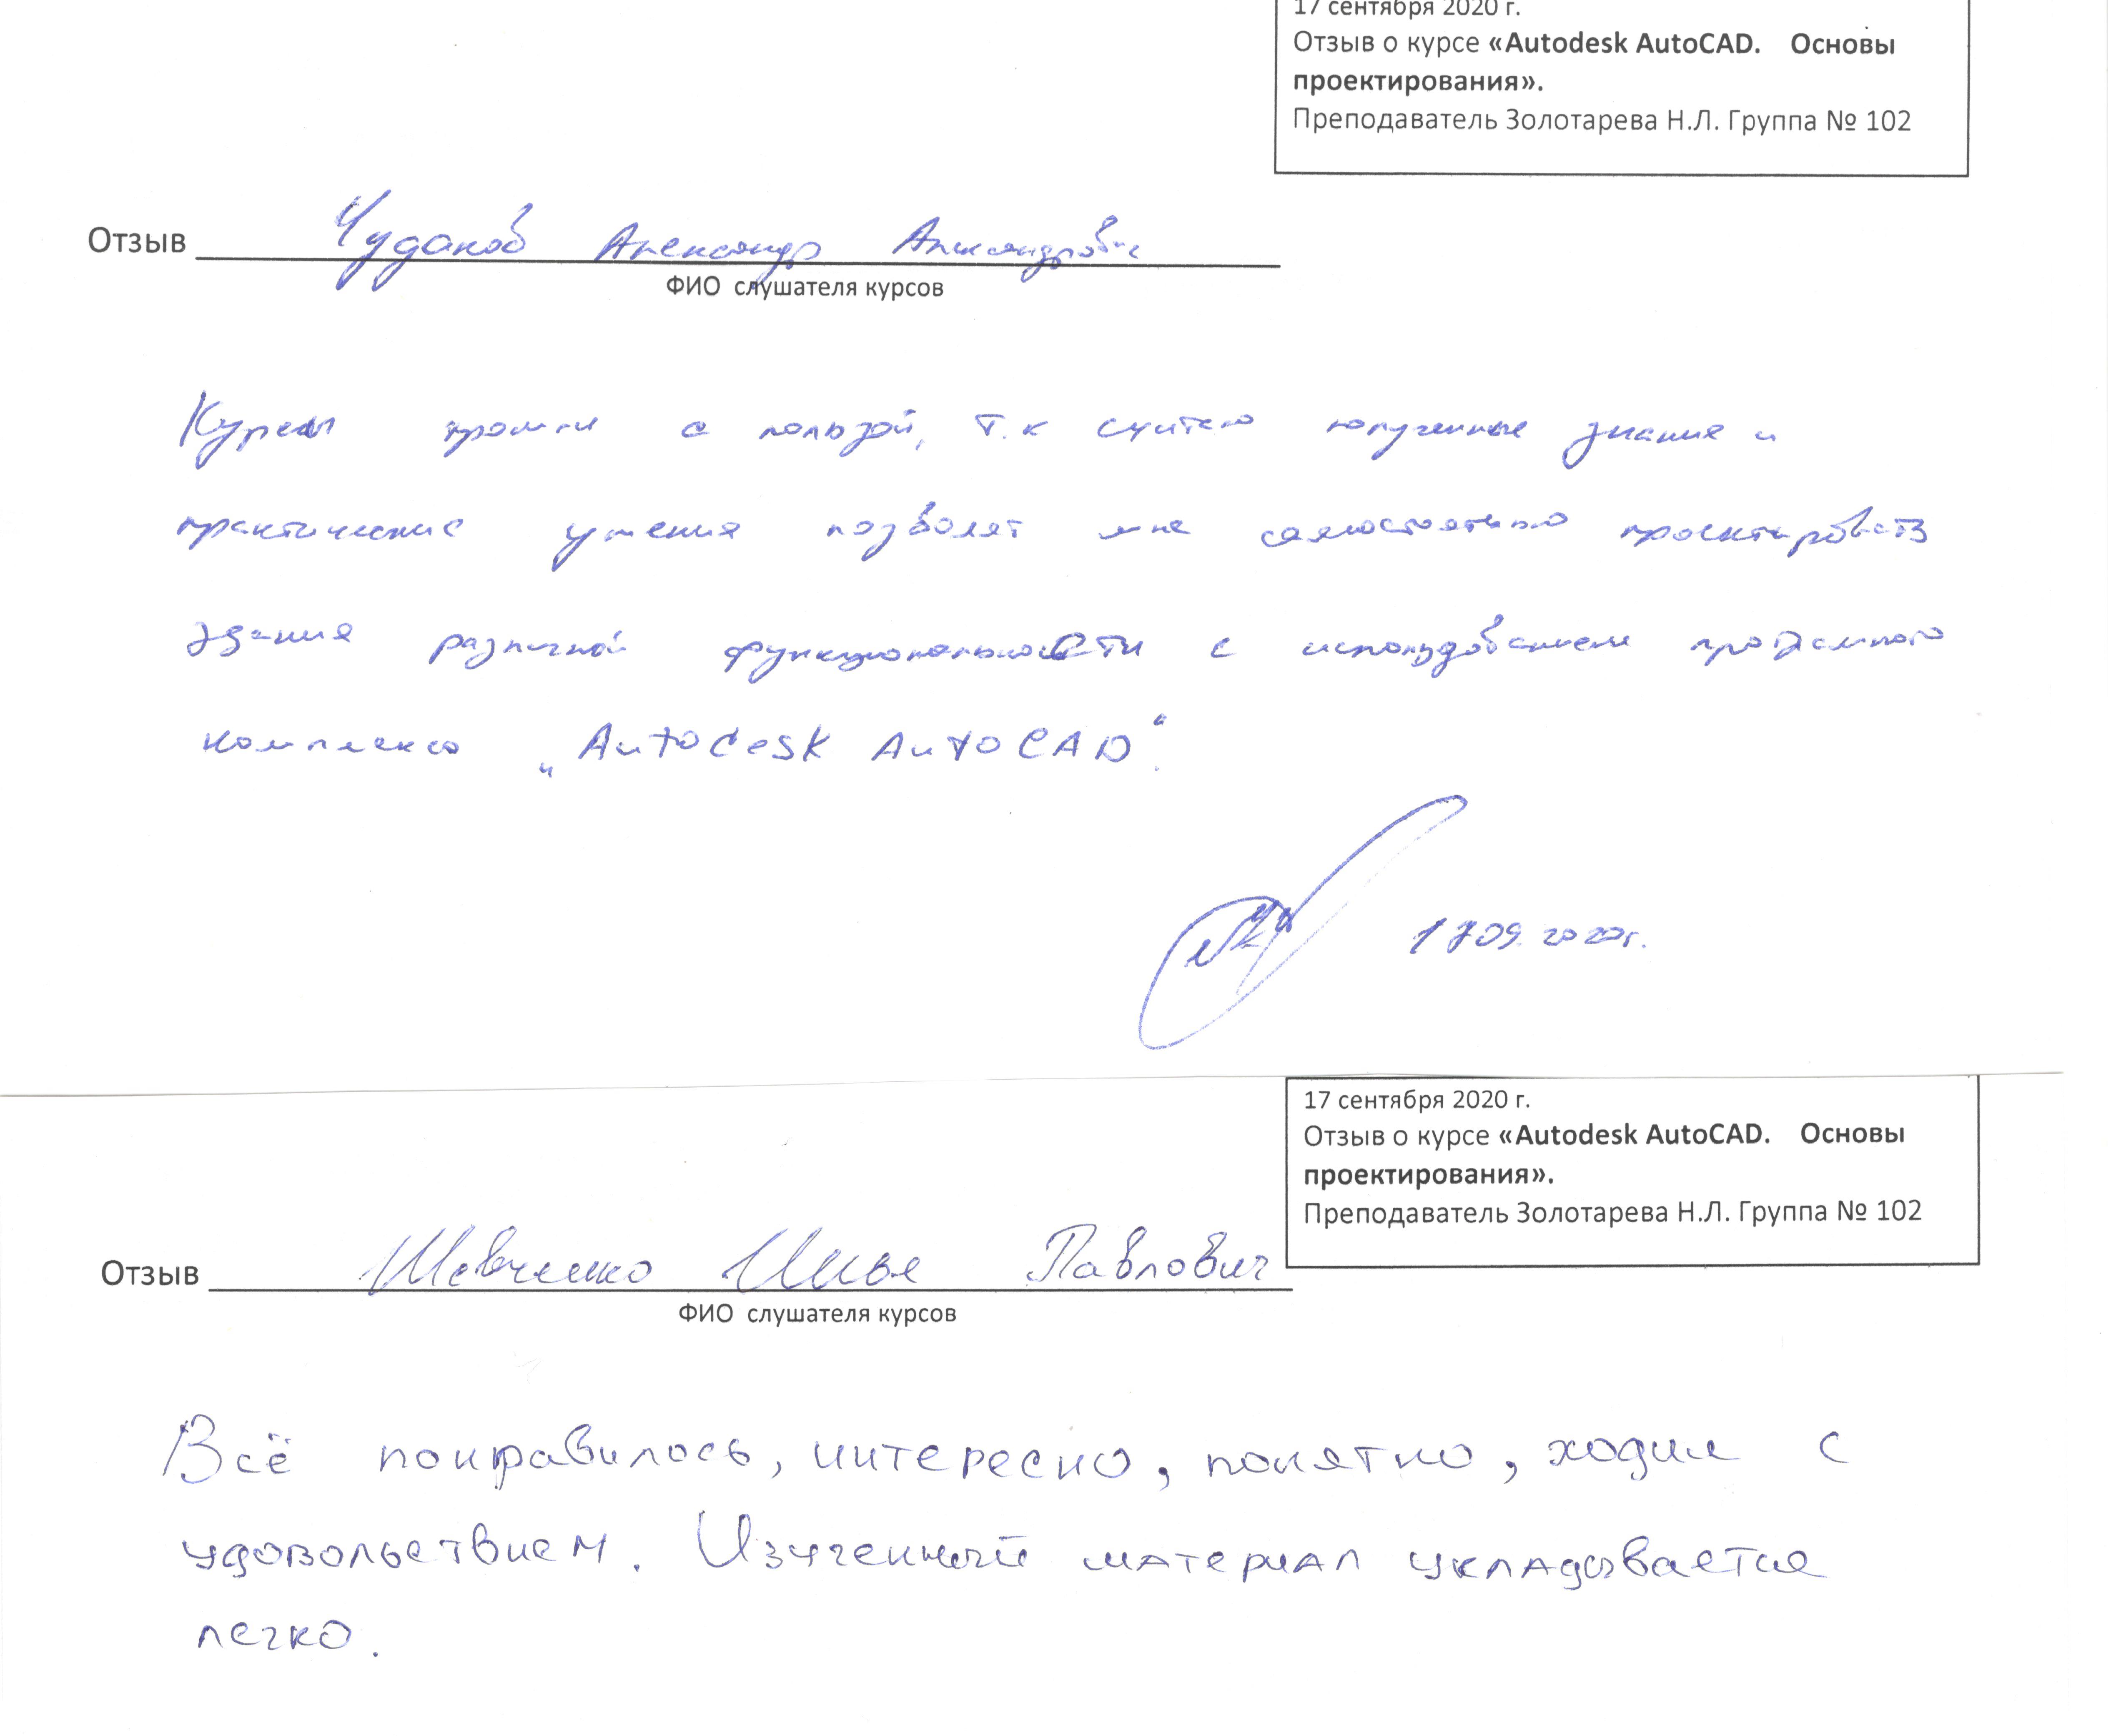 17 сентября 2020 г.
Отзыв о курсе «Autodesk AutoCAD. Основы
проектирования».
Преподаватель Золотарева Н.Л. Группа № 102
Отзыв Чудаков Александр Александрович
ФИО слушателя курсов
Курсы прошли с пользой, т.к считаю полученные знания и
практические умения позволят мне самостоятельно проектировать
здания различной функциональности с использованием програмного
комплекса „Autodesk AutoCAD“.
17.09.2020г.
17 сентября 2020 г.
Отзыв о курсе «Autodesk AutoCAD. Основы
проектирования».
Преподаватель Золотарева Н.Л. Группа № 102
Отзыв Шевченко Илья Павлович
ФИО слушателя курсов
Всё понравилось, интересно, понятно, ходил с
удовольствием. Изученный материал укладывается
легко.